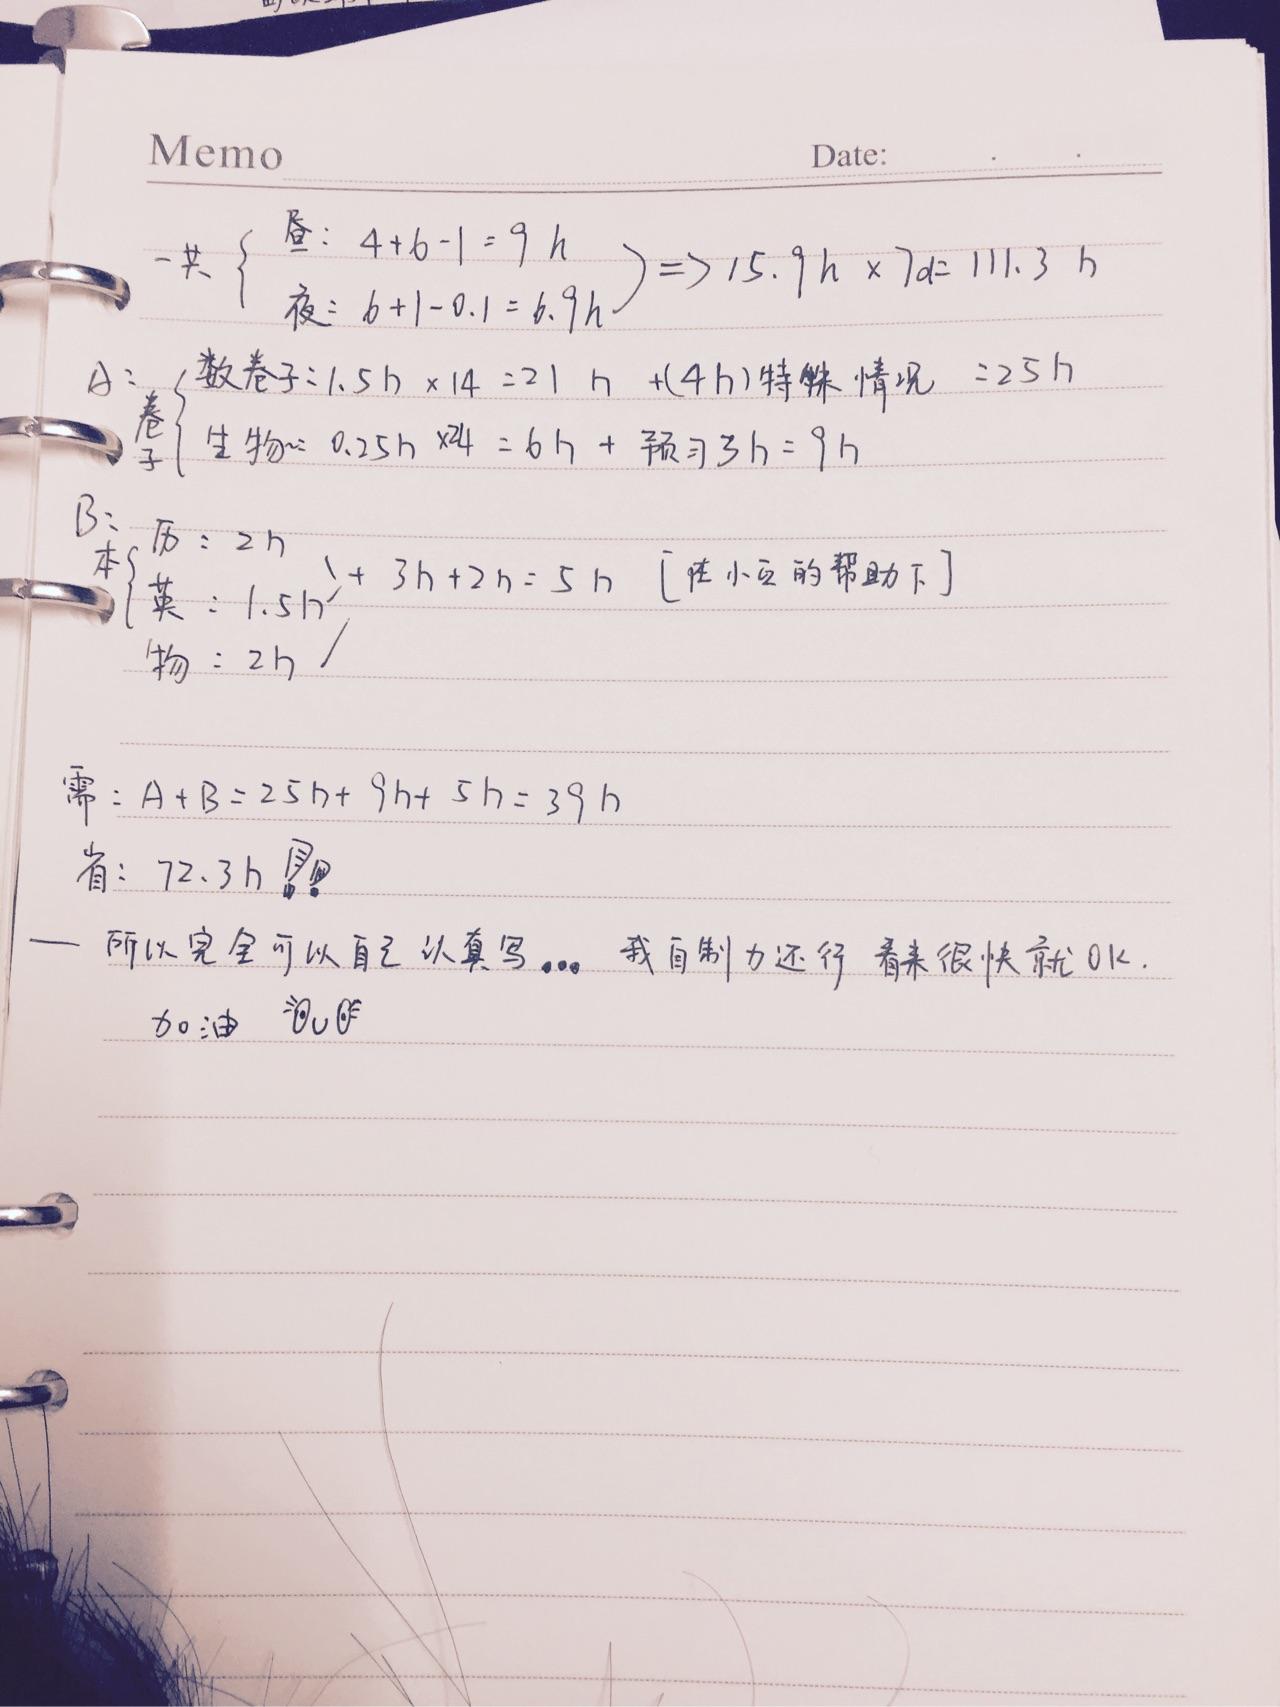 Memo
Date: . .
一共 { 昼: 4+6-1=9 h
夜: 6+1-0.1=6.9h } => 15.9h × 7d= 111.3 h
A: 卷子 { 数卷子:1.5h ×14 =21 h +(4h)特殊情况 =25h
生物~: 0.25h ×24 = 6h + 预习3h = 9h
B: 本 { 历: 2h
英: 1.5h + 3h+2h= 5h [ 小豆的帮助下]
物: 2h
需: A+B=25h+ 9h+ 5h=39h
省: 72.3h !!
— 所以完全可以自己认真写... 我自制力还行 看来很快就OK.
加油